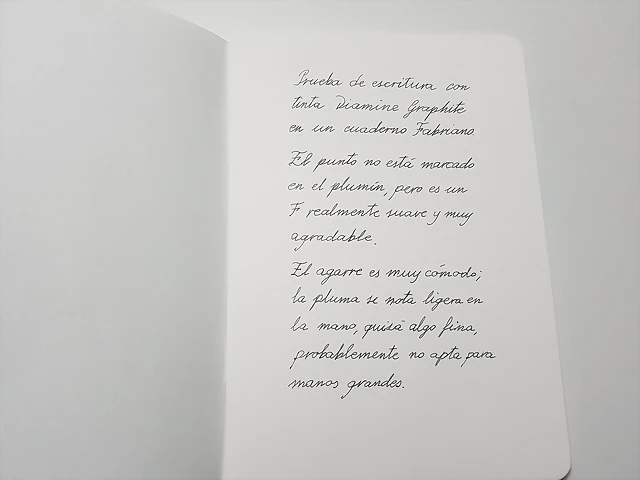 Prueba de escritura con
tinta Diamine Graphite
en un cuaderno Fabriano.
El punto no está marcado
en el plumín, pero es un
F realmente suave y muy
agradable.
El agarre es muy cómodo;
la pluma se nota ligera en
la mano, quizá algo fina,
probablemente no apta para
manos grandes.